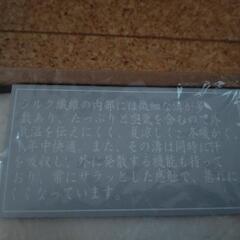 シルク繊維の内部には微細な溝が多
数あり、たっぷりと空気を含むので外
気温を伝えにくく、夏涼しくて冬暖かく、
一年中快適、また、その溝は同時に汗
を吸収し、外に発散する機能も持って
おり、常にサラッとした感触で、蒸れに
くくなっています。